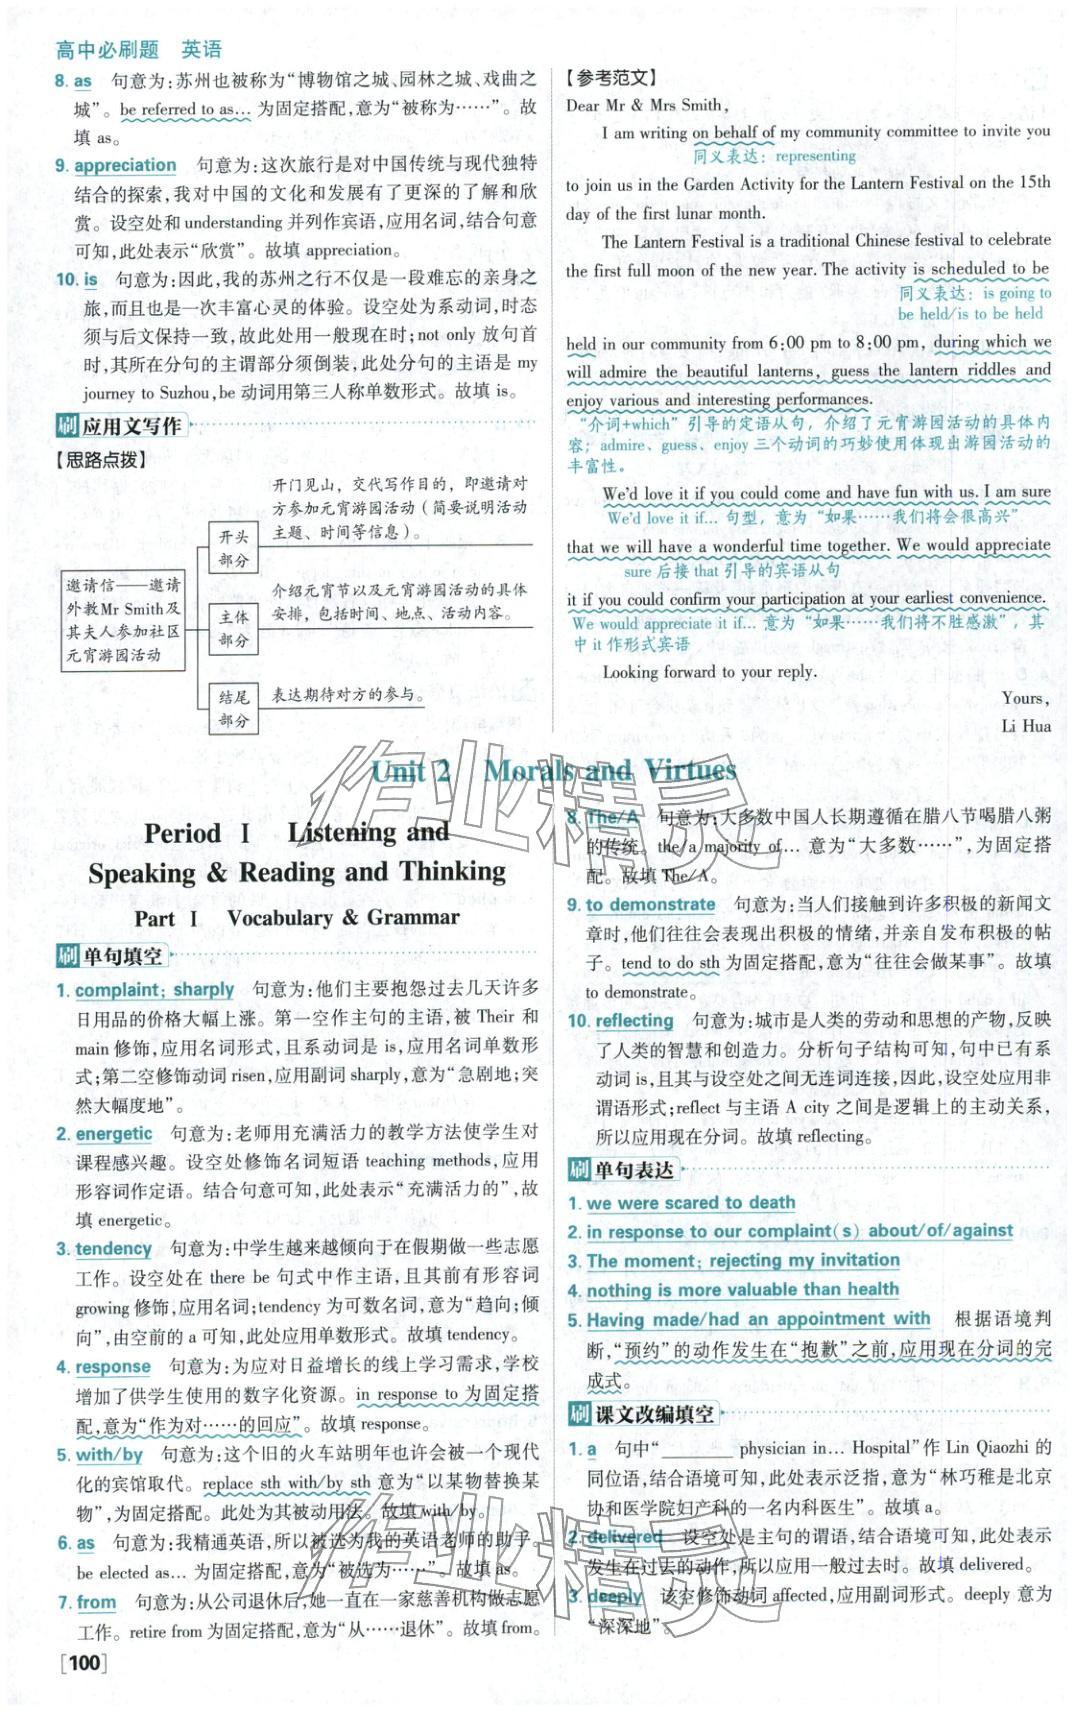 高中必刷题 英语
8. as 句意为:苏州也被称为“博物馆之城、园林之城、戏曲之
城”。be referred to as… 为固定搭配,意为“被称为……”。故
填 as。
9. appreciation 句意为:这次旅行是对中国传统与现代独特
结合的探索,我对中国的文化和发展有了更深的了解和欣
赏。设空处和 understanding 并列作宾语,应用名词,结合句意
可知,此处表示“欣赏”。故填 appreciation。
10. is 句意为:因此,我的苏州之行不仅是一段难忘的亲身之
旅,而且也是一次丰富心灵的体验。设空处为系动词,时态
须与后文保持一致,故此处用一般现在时;not only 放句首
时,其所在分句的主谓部分须倒装,此处分句的主语是 my
journey to Suzhou,be 动词用第三人称单数形式。故填 is。
刷 应用文写作
【思路点拨】
邀请信——邀请
外教Mr Smith及
其夫人参加社区
元宵游园活动
开头
部分
开门见山，交代写作目的，即邀请对
方参加元宵游园活动（简要说明活动
主题、时间等信息）。
主体
部分
介绍元宵节以及元宵游园活动的具体
安排，包括时间、地点、活动内容。
结尾
部分
表达期待对方的参与。
【参考范文】
Dear Mr & Mrs Smith,
I am writing on behalf of my community committee to invite you
同义表达：representing
to join us in the Garden Activity for the Lantern Festival on the 15th
day of the first lunar month.
The Lantern Festival is a traditional Chinese festival to celebrate
the first full moon of the new year. The activity is scheduled to be
同义表达：is going to
be held/is to be held
held in our community from 6:00 pm to 8:00 pm, during which we
will admire the beautiful lanterns, guess the lantern riddles and
enjoy various and interesting performances.
“介词+which”引导的定语从句，介绍了元宵游园活动的具体内
容；admire、guess、enjoy 三个动词的巧妙使用体现出游园活动的
丰富性。
We'd love it if you could come and have fun with us. I am sure
We'd love it if… 句型，意为“如果……我们将会很高兴”
that we will have a wonderful time together. We would appreciate
sure 后接 that 引导的宾语从句
it if you could confirm your participation at your earliest convenience.
We would appreciate it if… 意为“如果……我们将不胜感激”，其
中 it 作形式宾语
Looking forward to your reply.
Yours,
Li Hua
Unit 2 Morals and Virtues
Period Ⅰ Listening and
Speaking & Reading and Thinking
Part Ⅰ Vocabulary & Grammar
刷 单句填空
1. complaint; sharply 句意为:他们主要抱怨过去几天许多
日用品的价格大幅上涨。第一空作主句的主语,被 Their 和
main 修饰,应用名词形式,且系动词是 is,应用名词单数形
式;第二空修饰动词 risen,应用副词 sharply,意为“急剧地;突
然大幅度地”。
2. energetic 句意为:老师用充满活力的教学方法使学生对
课程感兴趣。设空处修饰名词短语 teaching methods,应用
形容词作定语。结合句意可知,此处表示“充满活力的”,故
填 energetic。
3. tendency 句意为:中学生越来越倾向于在假期做一些志愿
工作。设空处在 there be 句式中作主语,且其前有形容词
growing 修饰,应用名词;tendency 为可数名词,意为“趋向;倾
向”,由空前的 a 可知,此处应用单数形式。故填 tendency。
4. response 句意为:为应对日益增长的线上学习需求,学校
增加了供学生使用的数字化资源。in response to 为固定搭
配,意为“作为对……的回应”。故填 response。
5. with/by 句意为:这个旧的火车站明年也许会被一个现代
化的宾馆取代。replace sth with/by sth 意为“以某物替换某
物”,为固定搭配。此处为其被动用法。故填 with/by。
6. as 句意为:我精通英语,所以被选为我的英语老师的助手。
be elected as… 为固定搭配,意为“被选为……”。故填 as。
7. from 句意为:从公司退休后,她一直在一家慈善机构做志愿
工作。retire from 为固定搭配,意为“从……退休”。故填 from。
8. The/A 句意为:大多数中国人长期遵循在腊八节喝腊八粥
的传统。the/a majority of… 意为“大多数……”,为固定搭
配。故填 The/A。
9. to demonstrate 句意为:当人们接触到许多积极的新闻文
章时,他们往往会表现出积极的情绪,并亲自发布积极的帖
子。tend to do sth 为固定搭配,意为“往往会做某事”。故填
to demonstrate。
10. reflecting 句意为:城市是人类的劳动和思想的产物,反映
了人类的智慧和创造力。分析句子结构可知,句中已有系
动词 is,且其与设空处之间无连词连接,因此,设空处应用非
谓语形式;reflect 与主语 A city 之间是逻辑上的主动关系,
所以应用现在分词。故填 reflecting。
刷 单句表达
1. we were scared to death
2. in response to our complaint(s) about/of/against
3. The moment; rejecting my invitation
4. nothing is more valuable than health
5. Having made/had an appointment with 根据语境判
断,“预约”的动作发生在“抱歉”之前,应用现在分词的完
成式。
刷 课文改编填空
1. a 句中“________ physician in… Hospital”作 Lin Qiaozhi 的
同位语,结合语境可知,此处表示泛指,意为“林巧稚是北京
协和医学院妇产科的一名内科医生”。故填 a。
2. delivered 设空处是主句的谓语,结合语境可知,此处表示
发生在过去的动作,所以应用一般过去时。故填 delivered。
3. deeply 该空修饰动词 affected,应用副词形式。deeply 意为
“深深地”。
[100]
作业精灵
作业精灵